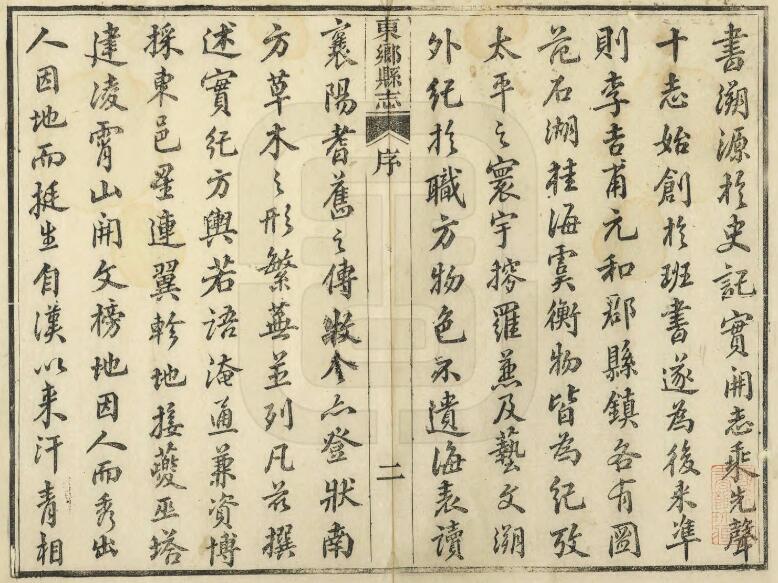 書溯源於史記實開志乘先聲
十志始創於班書遂為後来準
則李吉甫元和郡縣鎮各有圖
范石湖桂海虞衡物皆為紀攷
太平之寰宇搜羅兼及藝文溯
外紀於職方物色不遺海表讀
東鄉縣志
序
二
襄陽耆舊之傳亦登狀南
方草木之形繁蕪並列凡茲撰
述實紀方輿若語淹通兼資博
採東邑星連翼軫地接夔巫塔
建凌霄山開文榜地因人而秀出
人因地而挺生自漢以来汗青相